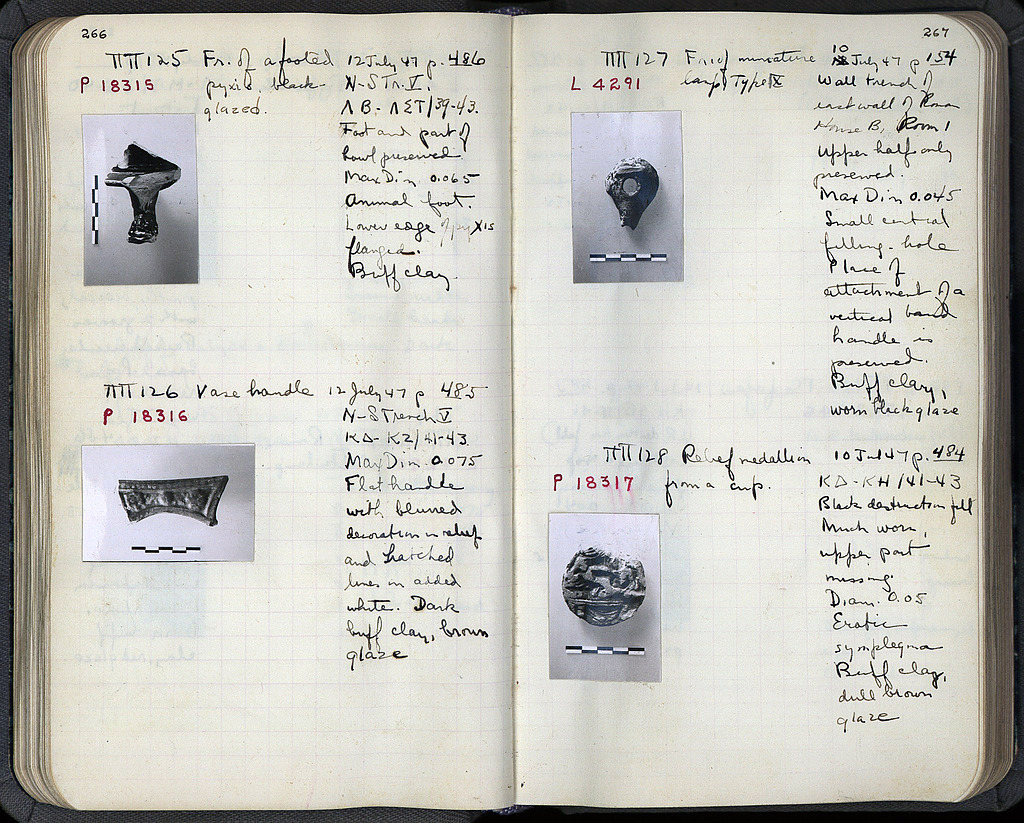 266
ΠΠ 125 Fr. of a footed 12 July 47 p. 486
P 18315 pyxis, black- N-S Tr. V.
glazed. ΛΒ-ΛΣΤ/39-43.
Foot and part of
bowl preserved.
Max Dim 0.065
Animal foot.
Lower edge of pyxis
flanged.
Buff clay.
ΠΠ 126 Vase handle 12 July 47 p 485
P 18316 N-S Trench V
ΚΔ-ΚΖ/41-43
Max Dim. 0.075
Flat handle
with blurred
decoration in relief
and hatched
lines in added
white. Dark
buff clay, brown
glaze
267
ΠΠ 127 Fr. of miniature 10 July 47 p 154
L 4291 lamp, Type IX Wall trench of
east wall of Roman
House B, Room 1
Upper half only
preserved.
Max Dim 0.045
Small central
filling-hole
Place of
attachment of a
vertical band
handle is
preserved.
Buff clay,
worn black glaze
ΠΠ 128 Relief medallion 10 Jul 47 p. 484
P 18317 from a cup. ΚΔ-ΚΗ/41-43
Black destruction fill
Much worn,
upper part
missing.
Diam. 0.05
Erotic
symplegma
Buff clay,
dull brown
glaze